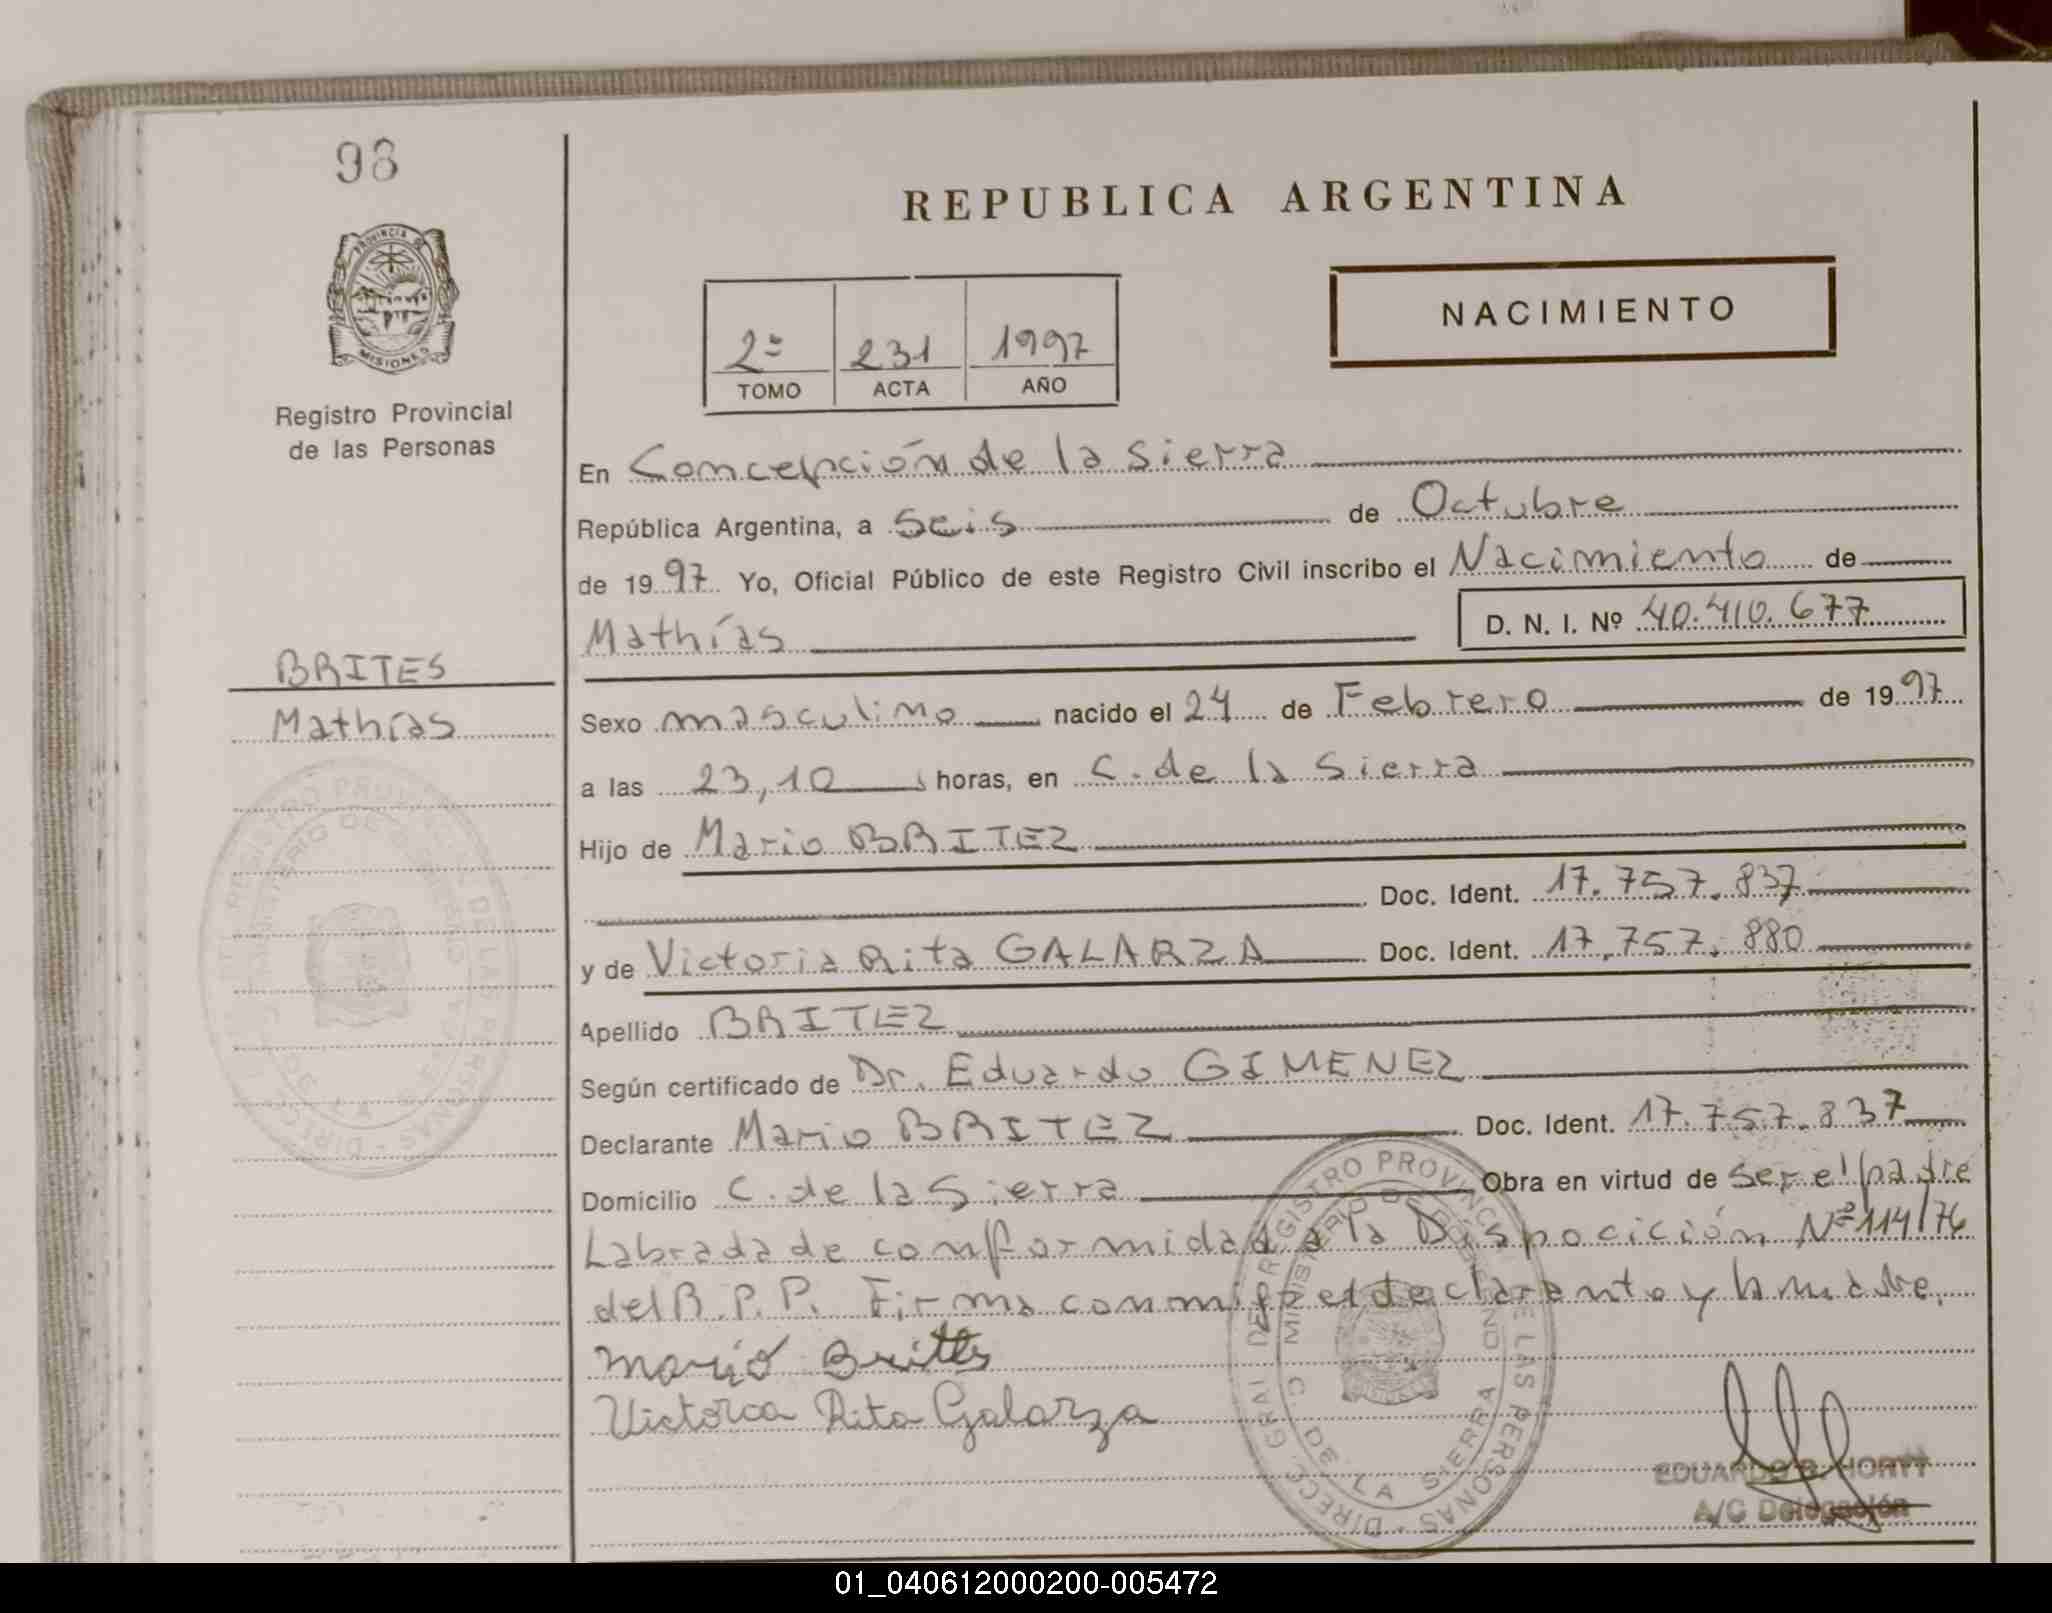 98
PROVINCIA DE
MISIONES
Registro Provincial
de las Personas
REPUBLICA ARGENTINA
NACIMIENTO
2º 231 1997
TOMO ACTA AÑO
En Concepción de la Sierra
República Argentina, a Seis de Octubre
de 1997 Yo, Oficial Público de este Registro Civil inscribo el Nacimiento de
Mathías D. N. I. Nº 40.410.677
BRITES
Mathías
Sexo masculino nacido el 24 de Febrero de 1997
a las 23,10 horas, en C. de la Sierra
Hijo de Mario BRITEZ
Doc. Ident. 17.757.837
y de Victoria Rita GALARZA Doc. Ident. 17.757.880
Apellido BRITEZ
Según certificado de Dr. Eduardo GIMENEZ
Declarante Mario BRITEZ Doc. Ident. 17.757.837
Domicilio C. de la Sierra Obra en virtud de ser el padre
Labrada de conformidad a la Disposición Nº 114/76
del R.P.P. Firma conmigo el declarante y la madre.
Mario Brittes
Victoria Rita Galarza
REGISTRO PROVINCIAL DE LAS PERSONAS - DIRECC. GRAL
MINISTERIO DE GOBIERNO
C. DE LA SIERRA
EDUARDO R. HORTT
A/C Delegación
01_040612000200-005472